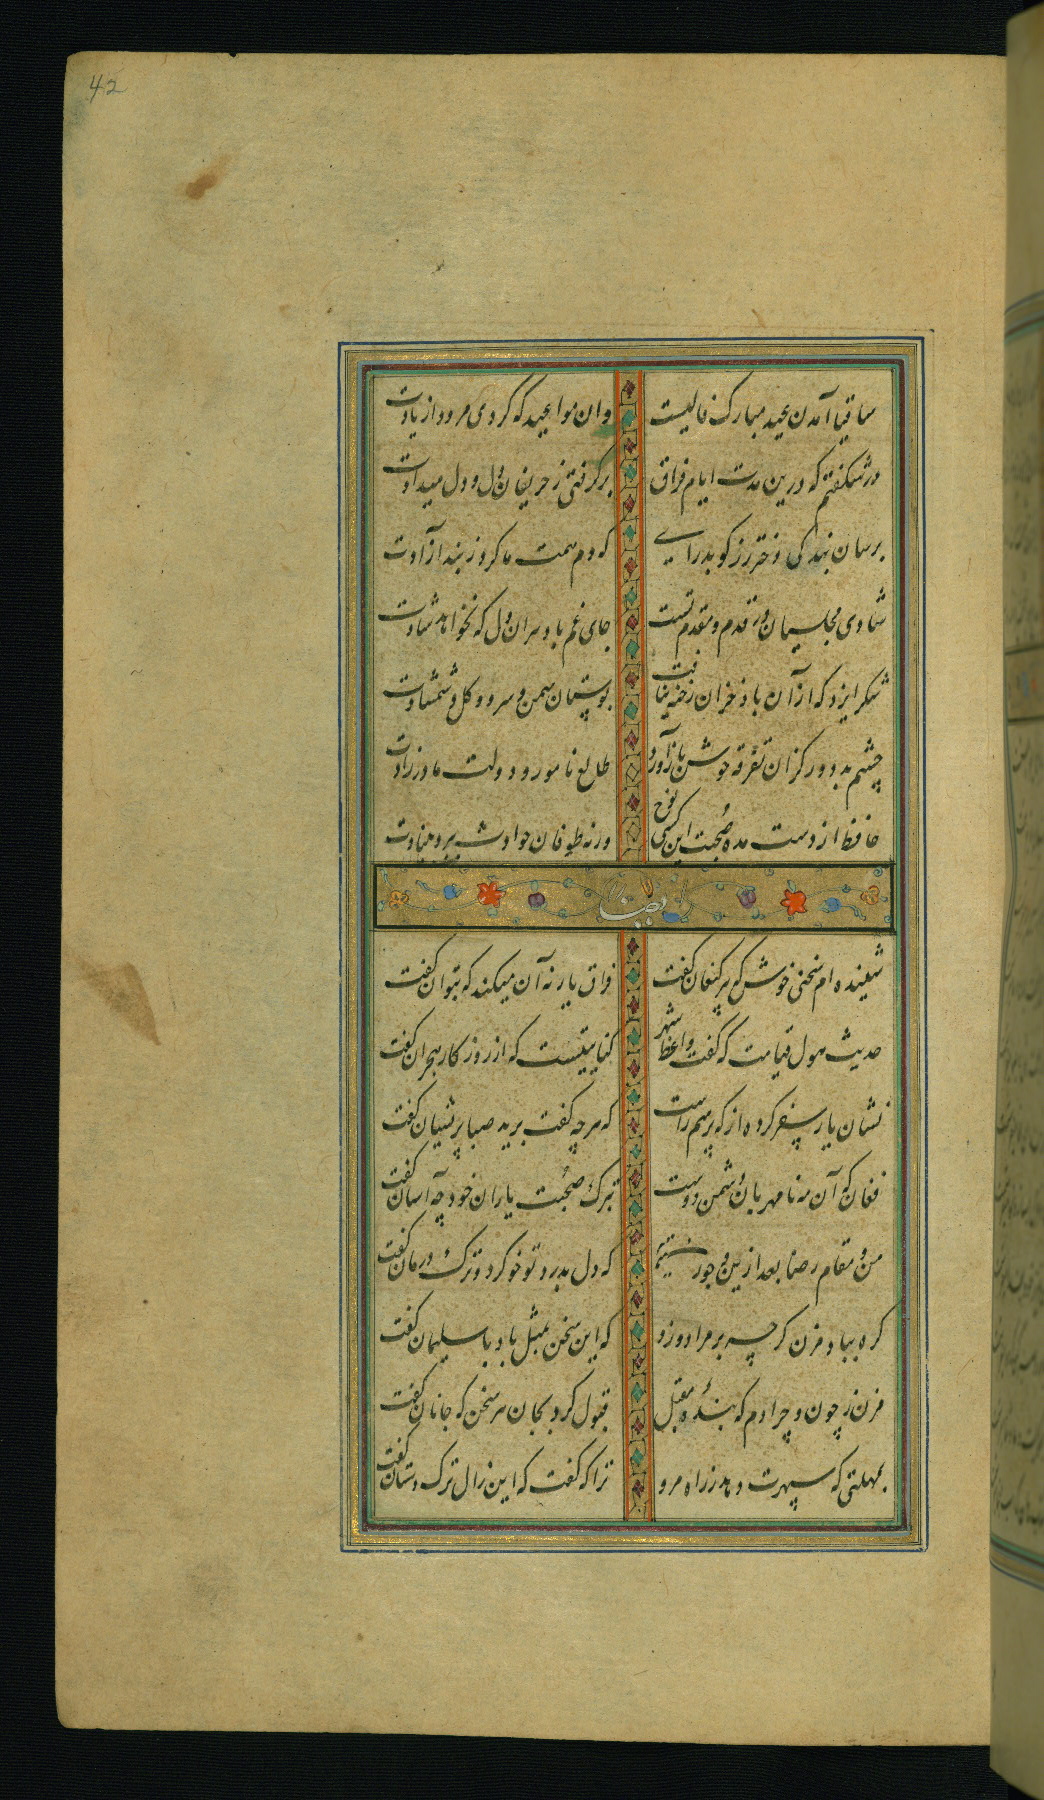 42
ساقیا آمدن عید مبارک فالیست وان مواعید که کردی مرود از یادت
در شکفتم که درین مدت ایام فراق برکرفتی ز حریفان دل و دل میدادت
برسان بندکی دختر رز کو بدر ای که دم همت ما کرد ز بند آزادت
شادی مجلسیان در قدم و مقدم تست جای غم باد مر ان دل که نخواهد شادت
شکر ایزد که از آن باد خزان رخنه نیافت بوستان سمن و سرو و کل و شمشادت
چشم بد دور کزان تفرقه خوش باز آورد طالع نامور و دولت مادر زادت
حافظ از دست مده صحبت این کشتی نوح ورنه طوفان حوادث ببرد بنیادت
شنیده ام سخنی خوش که پیر کنعان کفت فراق یار نه آن میکند که بتوان کفت
حدیث هول قیامت که کفت واعظ شهر کنایتیست که از روزکار هجران کفت
نشان یار سفر کرده از که پرسم راست که هر چه کفت برید صبا پریشان کفت
فغان که آن مه نامهربان دشمن دوست بترک صحبت یاران خود چه آسان کفت
من و مقام رضا بعد ازین و جور رقیب که دل بدرد تو خو کرد و ترک درمان کفت
کره بباد مزن کرچه بر مراد وزد که این سخن بمثل باد با سلیمان کفت
مزن ز چون و چرا دم که بندهٔ مقبل قبول کرد بجان هر سخن که جانان کفت
بمهلتی که سپهرت دهد ز راه مرو ترا که کفت که این زال ترک دستان کفت